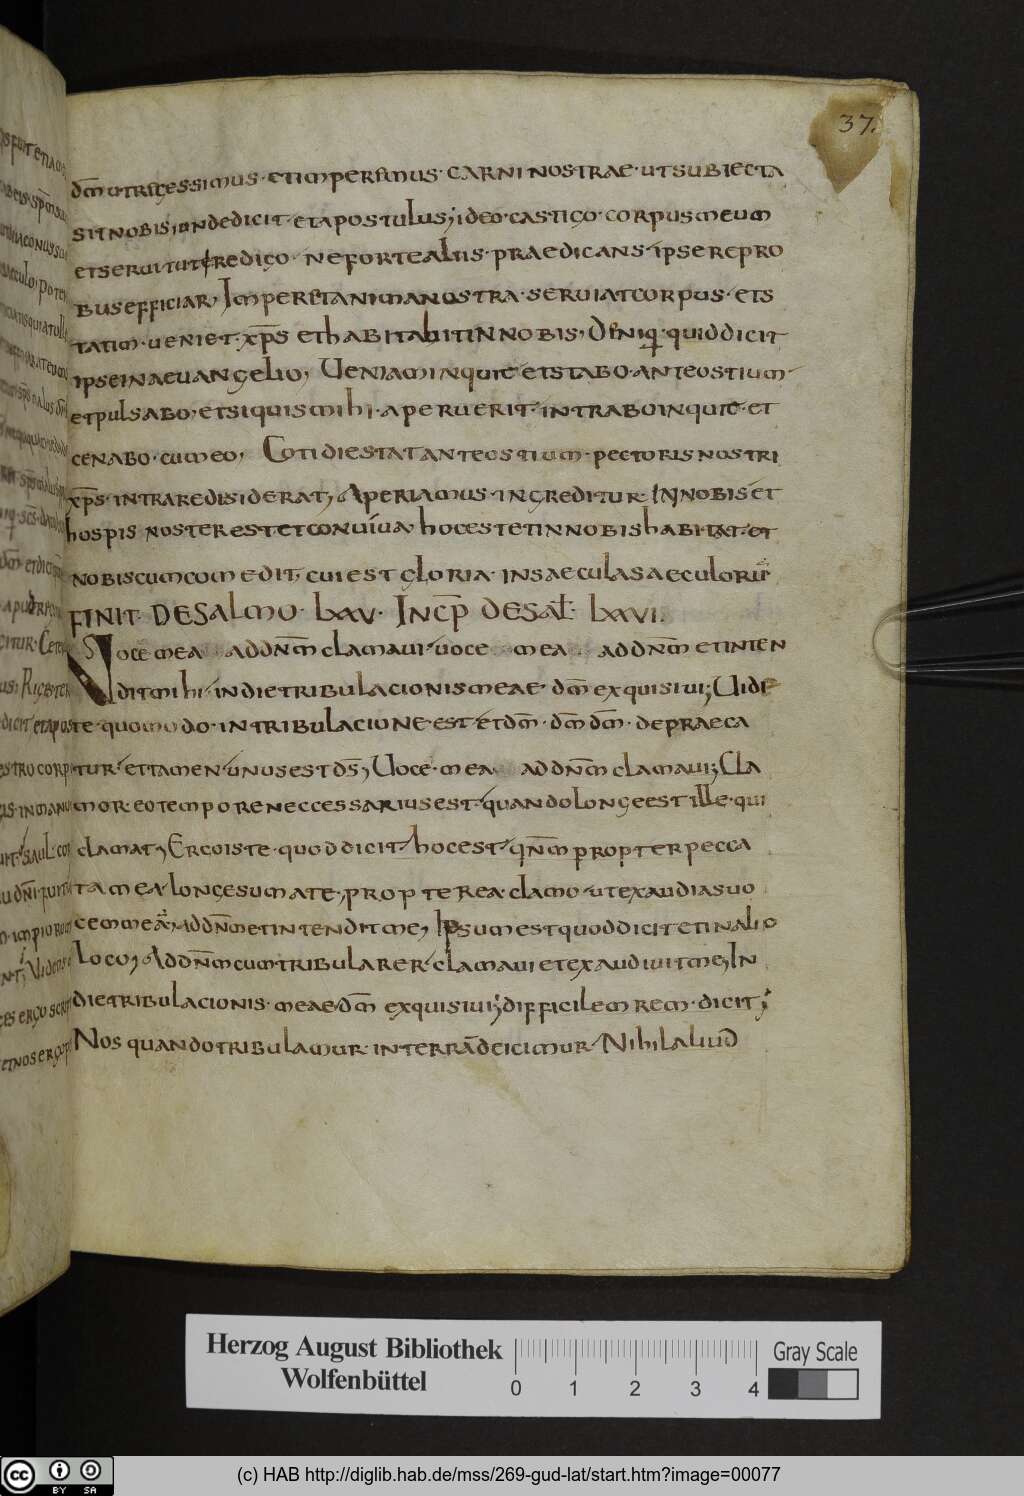 37.
dm̄ ut rigessimus · et imperemus · carni nostrae · ut subiecta
sit nobis; inde dicit · et apostulus; ideo · castigo · corpus meum
et seruituti redigo · ne forte aliis · praedicans · ipse repro
bus efficiar, Imperet anima nostra · seruiat corpus · et s
tatim · ueniet · xp̄s et habitabit in nobis, Deniq· quid dicit
ipse in aeuangelio, Ueniam inquit et stabo · ante ostium
et pulsabo, et si quis mihi · aperuerit · intrabo inquit · et
cenabo · cum eo, Cotidie stat ante ostium · pectoris nostri
xp̄s · intrare disiderat, Aperiamus · ingreditur · IN nobis et
hospis noster est et conuiua hoc est et in nobis habitat · et
nobiscum comedit, cui est gloria · in saecula saeculorum
FINIT · DE SALMO · lxxv · INCP̄ DE SAL̄ · lxxvi.
Voce mea ad dnm̄ clamaui · uoce mea ad dnm̄ et inten
dit mihi · in die tribulacionis meae · dm̄ exquisiui; Uidi
te · quomodo · in tribulacione est et dm̄ · dm̄ dm̄ · depraeca
tur · et tamen · unus est ds̄, Uoce · mea ad dnm̄ clamaui; Cla
mor · eo tempore neccessarius est · quando longe est ille · qui
clamat, Ergo iste · quod dicit · hoc est · qnm̄ propter pecca
ta mea · longe sum a te, propterea · clamo · ut exaudias uo
cem meā, ad dnm̄ et intendit me, Ipsum est quod dicit et in alio
loco, Ad dnm̄ cum tribularer · clamaui et exaudiuit me, In
die tribulacionis · meae · dm̄ exquisiui; difficilem rem · dicit;
Nos quando tribulamur · in terrā deicimur · Nihil aliud
Herzog August Bibliothek
Wolfenbüttel
0 1 2 3 4
Gray Scale
cc BY SA
(c) HAB http://diglib.hab.de/mss/269-gud-lat/start.htm?image=00077